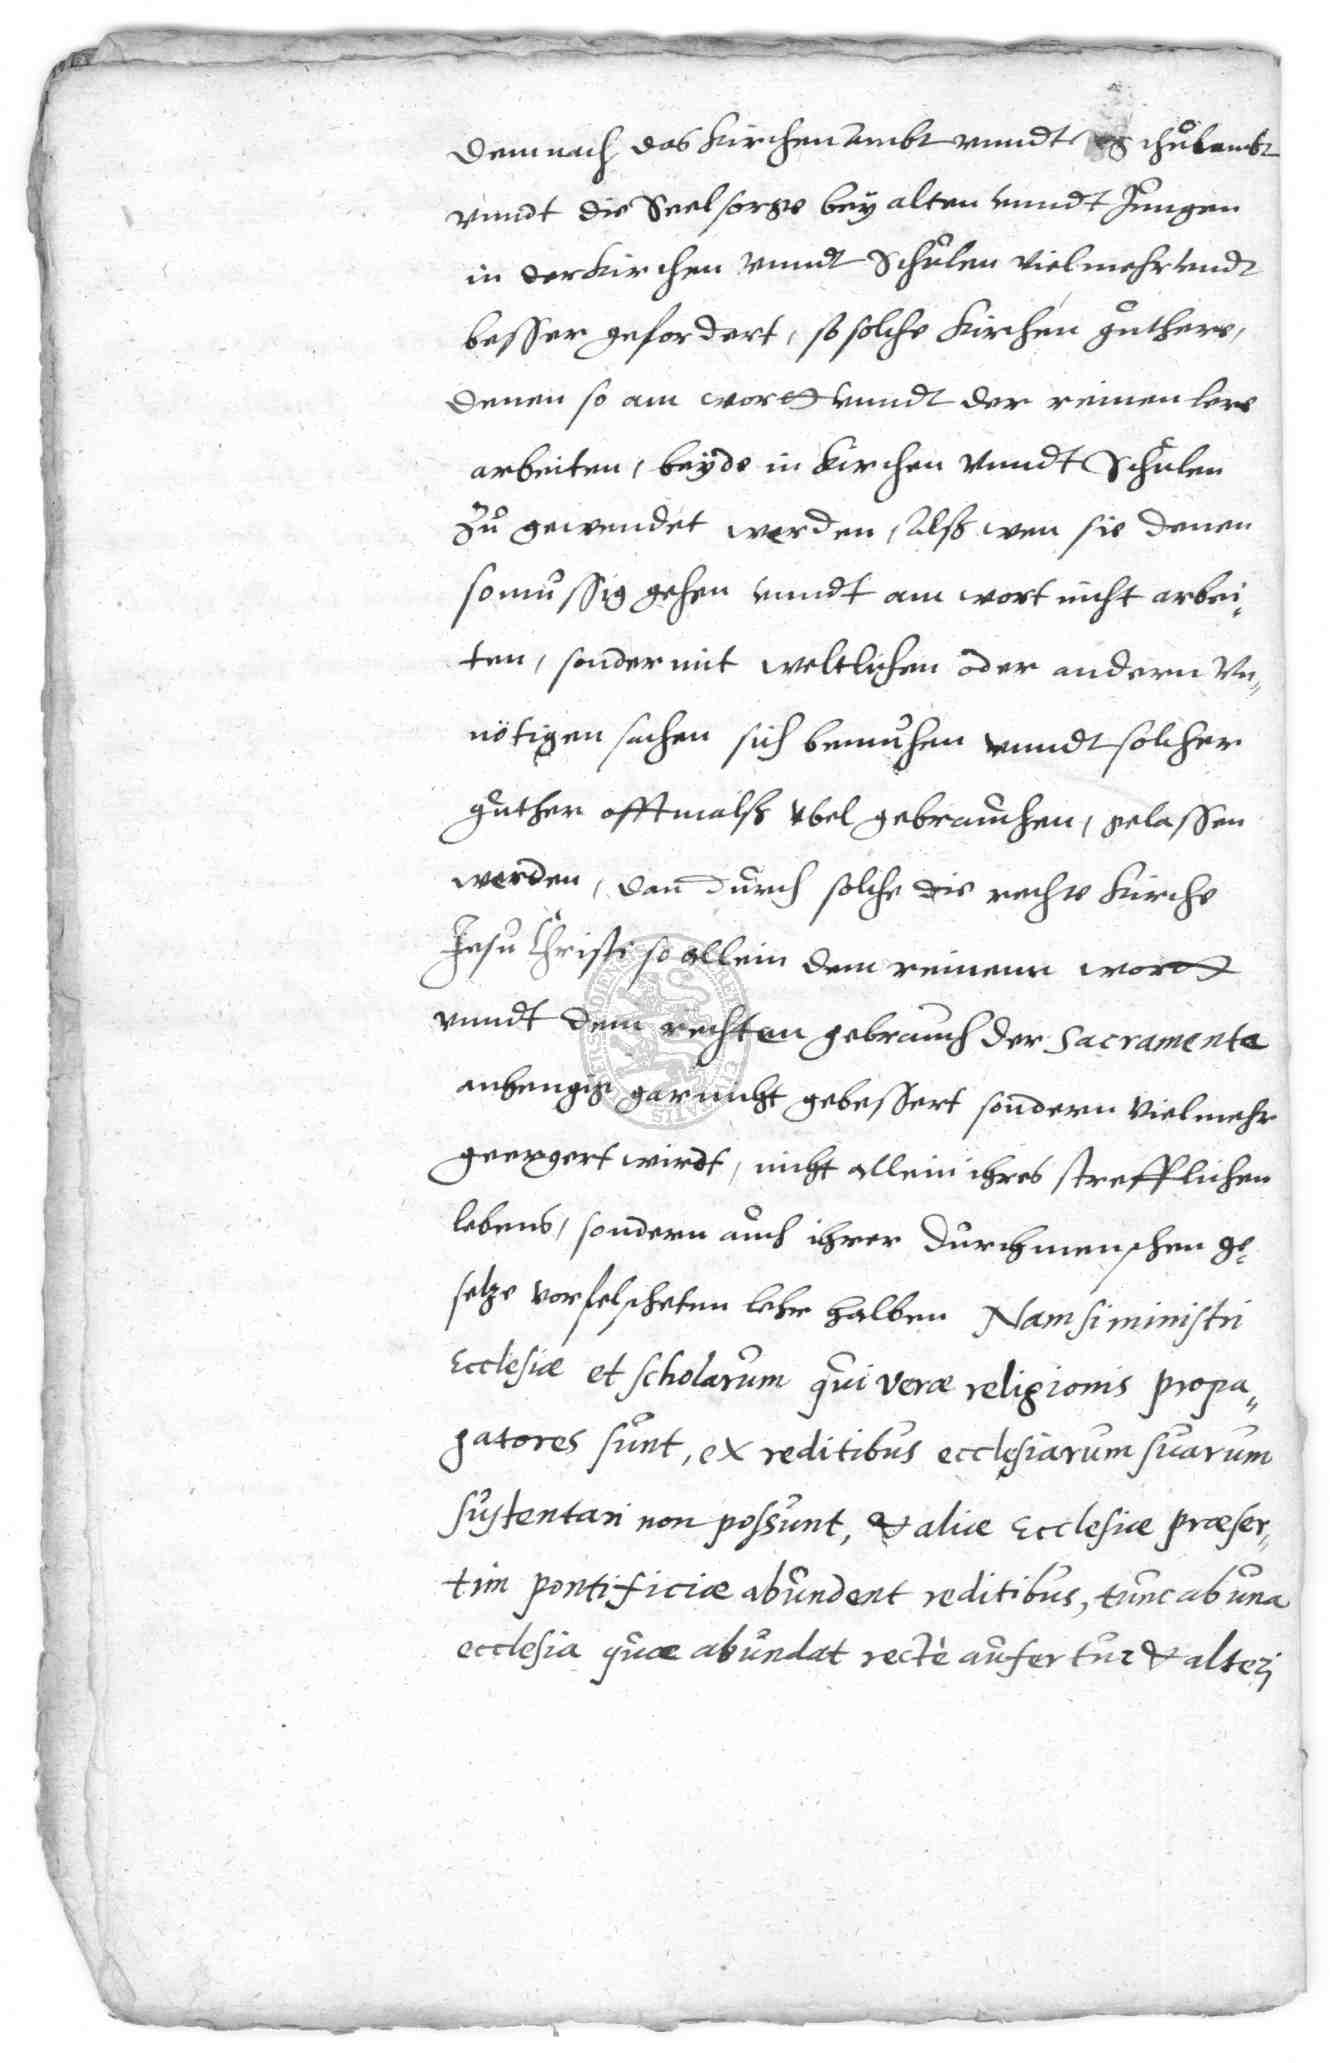 Demnach das Kirchen Ambt vnndt Schulambt
vnndt die Seelsorge bey alten vnndt Jungen
in der Kirchen vnndt Schulen viel mehr vndt
besser gefordert, so solche Kirchen guthere,
denen so am wortt vnndt der reinen lere
arbeiten, beyde in Kirchen vnndt Schulen
Zu gewendet werden, Alß wen sie denen
so mussig gehen vnndt am wort nicht arbei„
ten, sonder mit weltlichen oder andern Vn„
nötigen sachen sich bemuhen vnndt solcher
guther offtmalß vbel gebrauchen, gelassen
werden, dan durch solche die rechte Kirche
Jesu Christi so allein dem reinenn wortt
vnndt dem rechten gebrauch der Sacramenta
anhengig gar nicht gebessert sondern viel mehr
geergert wirdt, nicht allein ihres strefflichen
lebens, sondern auch ihrer durch menschen ge„
setze vorfelscheten lehr halben Nam si ministri
Ecclesiæ et scholarum qui veræ religionis propa„
gatores sunt, ex reditibus ecclesiarum suarum
sustentari non possunt, & aliæ Ecclesiæ præser„
tim pontificiæ abundent reditibus, tunc ab una
ecclesia quæ abundat rectè aufertur & alteri